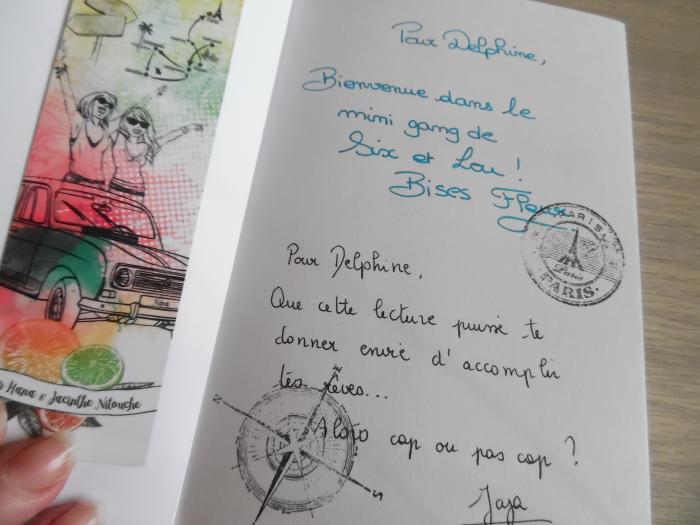 Pour Delphine,
Bienvenue dans le
mini gang de
Six et Lou !
Bises
PARIS
Paris
PARIS
Pour Delphine,
Que cette lecture puisse te
donner envie d'accomplir
tes rêves...
Alors cap ou pas cap ?
Jaja
Hana & Jacinthe Nitouche